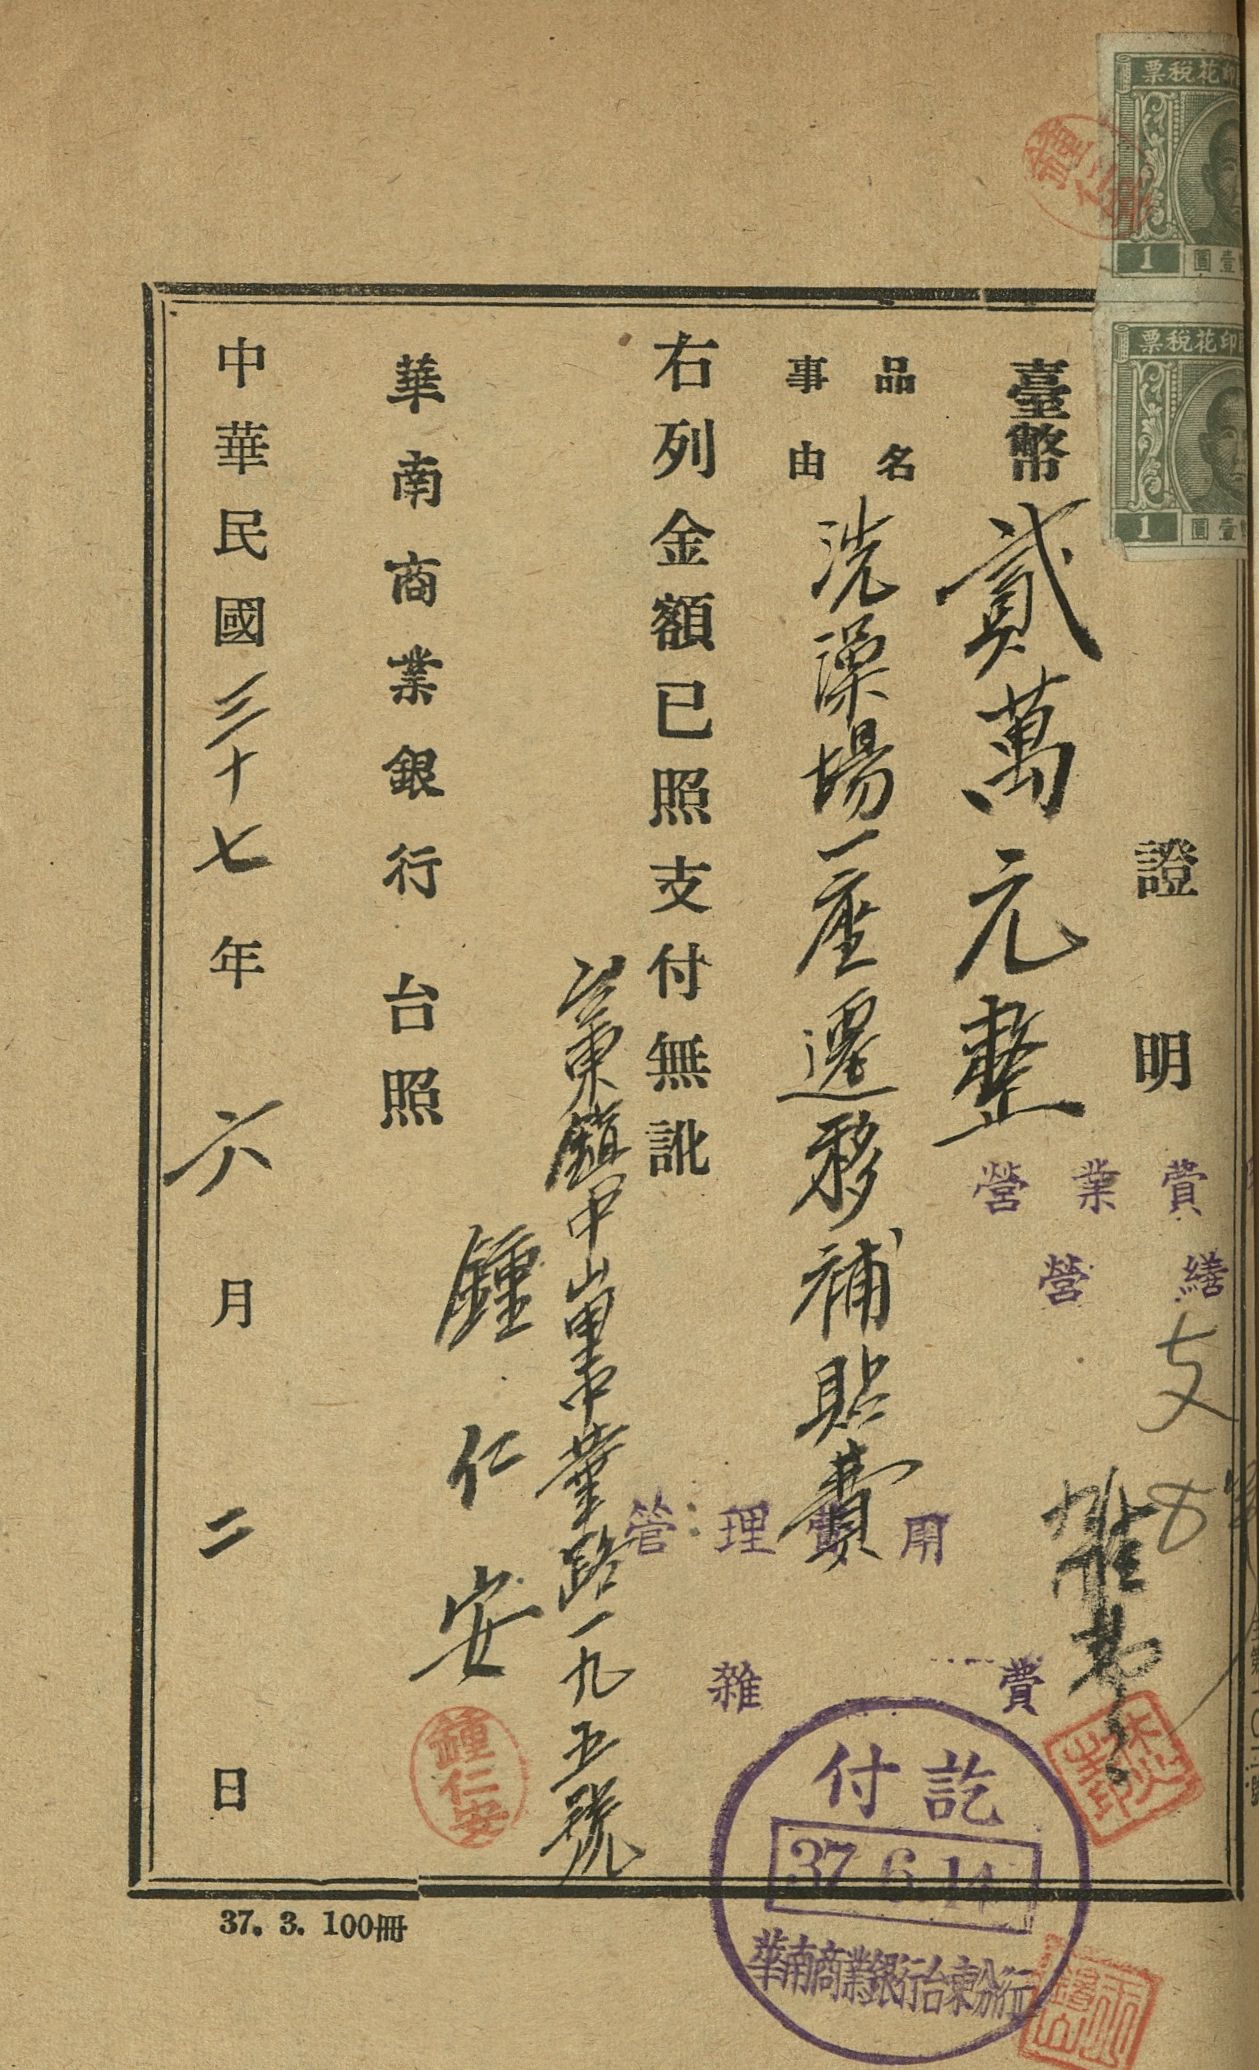 印花稅票
1
壹圓
印花稅票
1
壹圓
證明
臺幣貳萬元整
品名
事由
洗澡場一座遷移補貼費
右列金額已照支付無訛
臺東鎮中山里中華路一九五號
鍾仁安
鍾仁安
華南商業銀行 台照
中華民國三十七年六月二日
營業費
營繕
支
管理費用
雜費
付訖
37.6.14
華南商業銀行台東分行
37. 3. 100冊